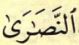 اَلنَّصَرٰىٰ